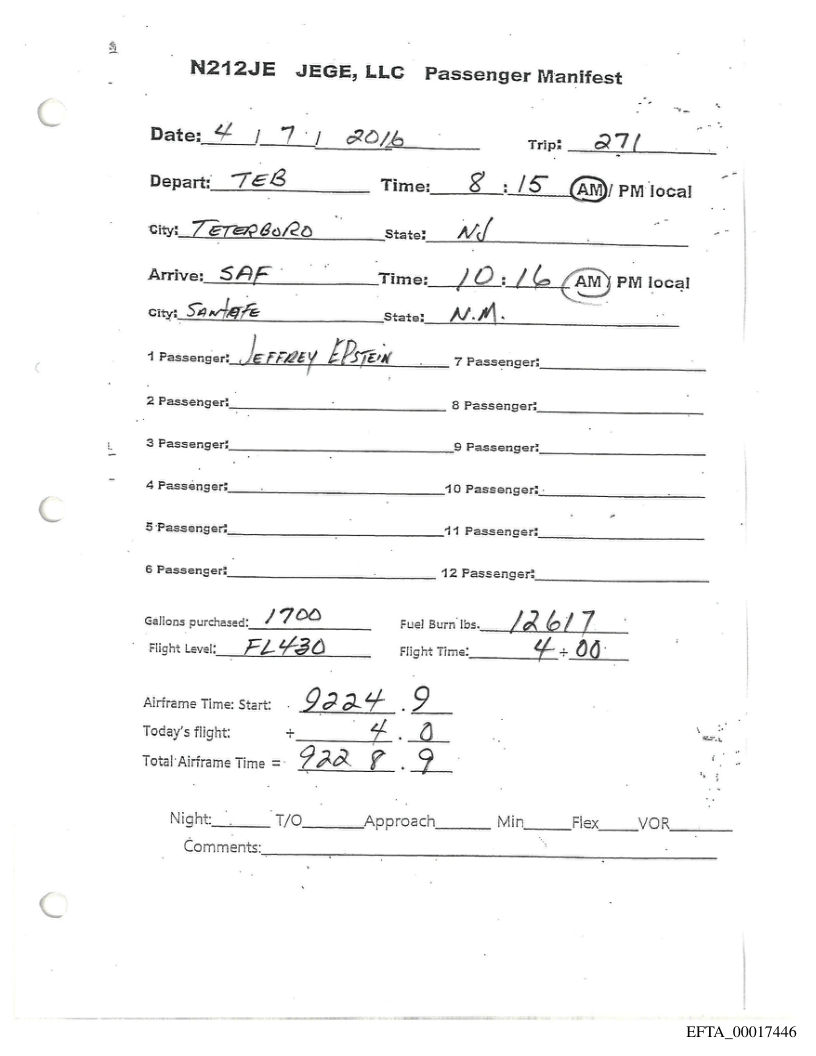 N212JE JEGE, LLC Passenger Manifest
Date: 4 / 7 / 2016 Trip: 271
Depart: TEB Time: 8 : 15 AM / PM local
City: TETERBORO State: NJ
Arrive: SAF Time: 10 : 16 AM / PM local
City: SANTAFE State: N.M.
1 Passenger: JEFFREY EPSTEIN 7 Passenger:
2 Passenger: 8 Passenger:
3 Passenger: 9 Passenger:
4 Passenger: 10 Passenger:
5 Passenger: 11 Passenger:
6 Passenger: 12 Passenger:
Gallons purchased: 1700 Fuel Burn lbs. 12617
Flight Level: FL430 Flight Time: 4 + 00
Airframe Time: Start: 9224 . 9
Today's flight: + 4 . 0
Total Airframe Time = 9228 . 9
Night: T/O Approach Min Flex VOR
Comments:
EFTA_00017446